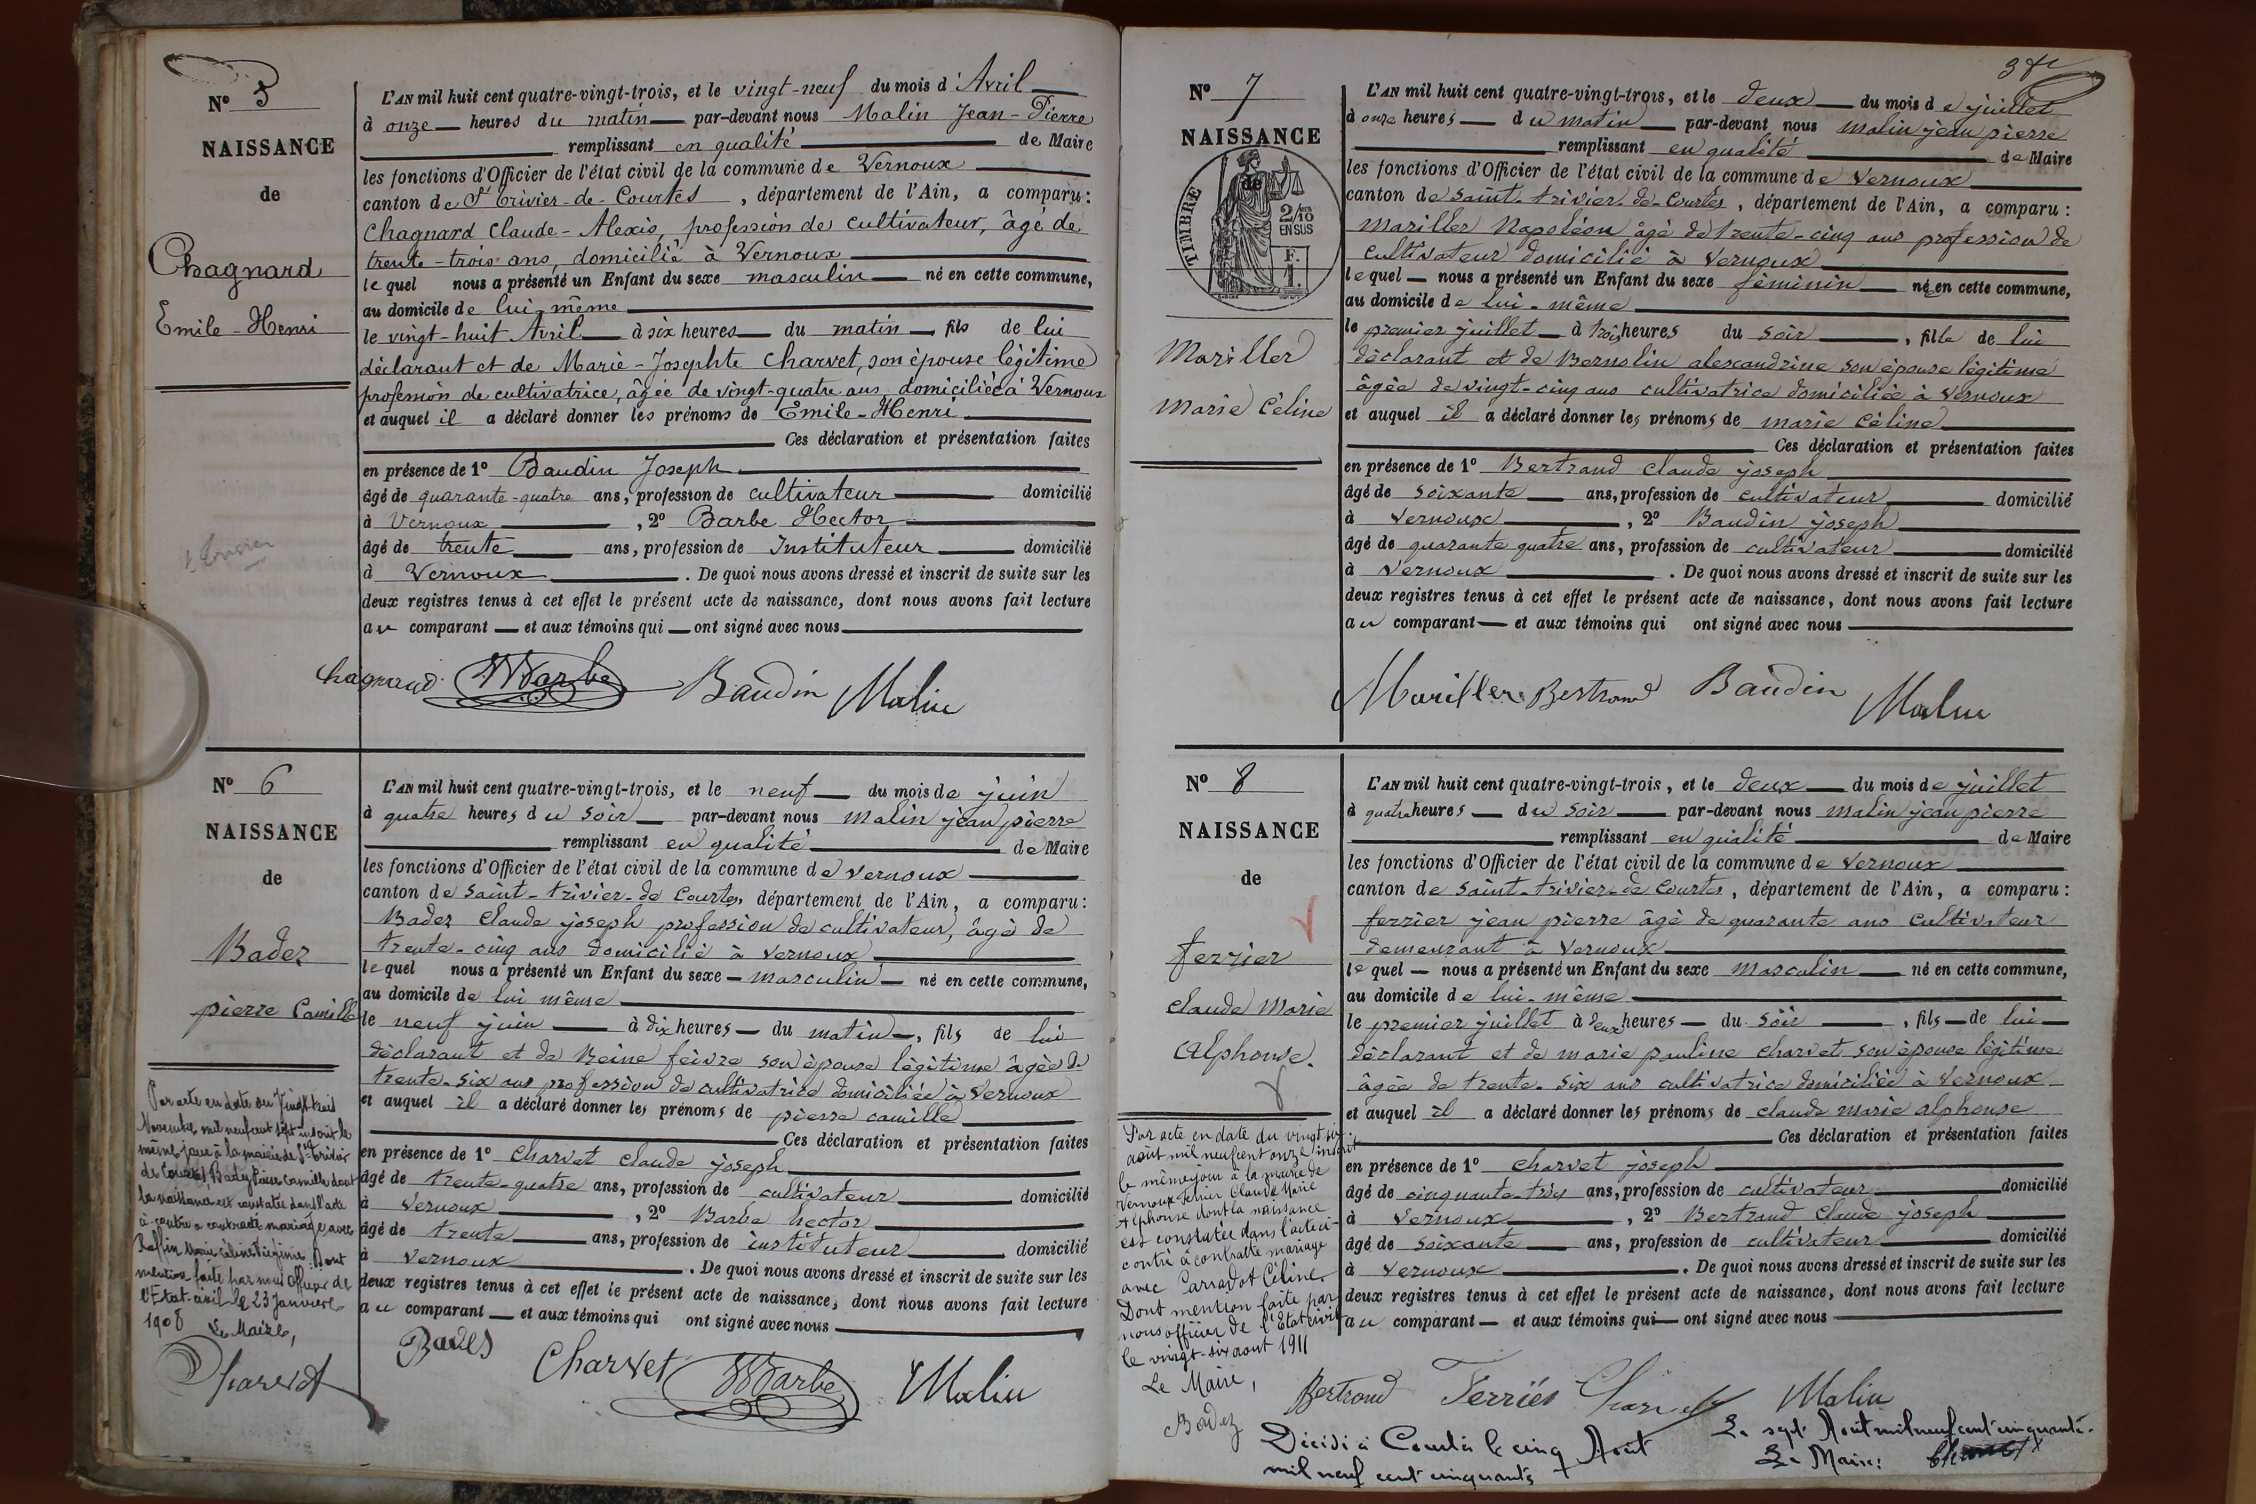 N° 5
NAISSANCE
de
Chagnard
Emile-Henri
L'AN mil huit cent quatre-vingt-trois, et le vingt-neuf du mois d'Avril
à onze heures du matin par-devant nous Malin Jean-Pierre
remplissant en qualité de Maire
les fonctions d'Officier de l'état civil de la commune de Vernoux
canton de St Trivier-de-Courtes, département de l'Ain, a comparu:
Chagnard Claude-Alexis, profession de cultivateur, âgé de
trente-trois ans, domicilié à Vernoux
lequel nous a présenté un Enfant du sexe masculin né en cette commune,
au domicile de lui-même
le vingt-huit Avril à six heures du matin, fils de lui
déclarant et de Marie-Josephte Charvet, son épouse légitime
profession de cultivatrice, âgée de vingt-quatre ans, domiciliée à Vernoux
et auquel il a déclaré donner les prénoms de Emile-Henri
Ces déclaration et présentation faites
en présence de 1° Baudin Joseph
âgé de quarante-quatre ans, profession de cultivateur domicilié
à Vernoux, 2° Barbe Hector
âgé de trente ans, profession de Instituteur domicilié
à Vernoux. De quoi nous avons dressé et inscrit de suite sur les
deux registres tenus à cet effet le présent acte de naissance, dont nous avons fait lecture
au comparant et aux témoins qui ont signé avec nous
Chagnard HBarbe Baudin Malin
N° 6
NAISSANCE
de
Badez
pierre Camille
L'AN mil huit cent quatre-vingt-trois, et le neuf du mois de juin
à quatre heures du soir par-devant nous malin jean pierre
remplissant en qualité de Maire
les fonctions d'Officier de l'état civil de la commune de vernoux
canton de saint-trivier-de Courtes, département de l'Ain, a comparu:
Badez claude joseph profession de cultivateur, âgé de
trente-cinq ans domicilié à vernoux
lequel nous a présenté un Enfant du sexe masculin né en cette commune,
au domicile de lui même
le neuf juin à dix heures du matin, fils de lui
déclarant et de Reine feivre son épouse légitime âgée de
trente-six ans profession de cultivatrice domiciliée à Vernoux
et auquel il a déclaré donner les prénoms de pierre camille
Ces déclaration et présentation faites
en présence de 1° Charvet claude joseph
âgé de trente-quatre ans, profession de cultivateur domicilié
à vernoux, 2° Barbe hector
âgé de trente ans, profession de instituteur domicilié
à vernoux. De quoi nous avons dressé et inscrit de suite sur les
deux registres tenus à cet effet le présent acte de naissance, dont nous avons fait lecture
au comparant et aux témoins qui ont signé avec nous
Badez Charvet HBarbe Malin
Par acte en date du Vingt trois
Novembre mil neuf cent sept inscrit le
même jour à la mairie de St Trivier
de Courtes, Badez Pierre Camille dont
la naissance est constatée dans l'acte
ci-contre a contracté mariage avec
Raffin Marie Céline Virginie. Dont
mention faite par nous Officier de
l'Etat-civil le 23 Janvier
1908 Le Maire,
Charvet
N° 7
NAISSANCE
de
TIMBRE
2/10 EN SUS
F. 1.
Mariller
Marie Céline
L'AN mil huit cent quatre-vingt-trois, et le deux du mois de juillet
à onze heures du matin par-devant nous malin jean pierre
remplissant en qualité de Maire
les fonctions d'Officier de l'état civil de la commune de Vernoux
canton de saint-trivier-de-Courtes, département de l'Ain, a comparu:
Mariller Napoléon âgé de trente-cinq ans profession de
cultivateur domicilié à vernoux
lequel nous a présenté un Enfant du sexe féminin né en cette commune,
au domicile de lui-même
le premier juillet à trois heures du soir, fille de lui
déclarant et de Bernolin alexandrine son épouse légitime
âgée de vingt-cinq ans cultivatrice domiciliée à Vernoux
et auquel il a déclaré donner les prénoms de marie Céline
Ces déclaration et présentation faites
en présence de 1° Bertrand claude joseph
âgé de soixante ans, profession de cultivateur domicilié
à vernoux, 2° Baudin joseph
âgé de quarante quatre ans, profession de cultivateur domicilié
à vernoux. De quoi nous avons dressé et inscrit de suite sur les
deux registres tenus à cet effet le présent acte de naissance, dont nous avons fait lecture
au comparant et aux témoins qui ont signé avec nous
Mariller Bertrand Baudin Malin
N° 8
NAISSANCE
de
ferrier
claude Marie
Alphonse.
L'AN mil huit cent quatre-vingt-trois, et le deux du mois de juillet
à quatre heures du soir par-devant nous malin jean pierre
remplissant en qualité de Maire
les fonctions d'Officier de l'état civil de la commune de vernoux
canton de saint-trivier-de Courtes, département de l'Ain, a comparu:
ferrier jean pierre âgé de quarante ans cultivateur
demeurant à vernoux
lequel nous a présenté un Enfant du sexe masculin né en cette commune,
au domicile de lui-même
le premier juillet à deux heures du soir, fils de lui
déclarant et de marie pauline charvet son épouse légitime
âgée de trente-six ans cultivatrice domiciliée à Vernoux
et auquel il a déclaré donner les prénoms de claude marie alphonse
Ces déclaration et présentation faites
en présence de 1° charvet joseph
âgé de cinquante-trois ans, profession de cultivateur domicilié
à vernoux, 2° Bertrand claude joseph
âgé de soixante ans, profession de cultivateur domicilié
à vernoux. De quoi nous avons dressé et inscrit de suite sur les
deux registres tenus à cet effet le présent acte de naissance, dont nous avons fait lecture
au comparant et aux témoins qui ont signé avec nous
Bertrand Ferriés Charvet Malin
Par acte en date du vingt six
août mil neuf cent onze inscrit
le même jour à la mairie de
Vernoux Ferrier Claude Marie
Alphonse dont la naissance
est constatée dans l'acte ci-
contre à contracté mariage
avec Carradot Céline.
Dont mention faite par
nous officier de l'Etat civil
le vingt-six aout 1911
Le Maire,
Badez
Décédé à Courtes le cinq Août
mil neuf cent cinquante
Le sept Août mil neuf cent cinquante.
Le Maire: